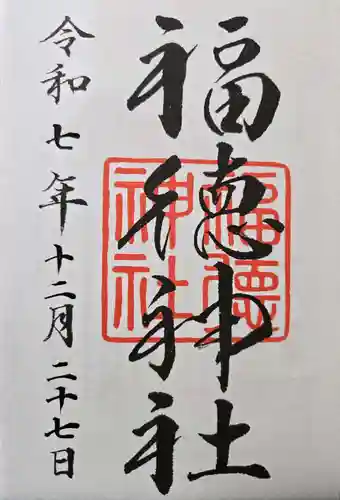 福徳神社
福徳神社
令和七年十二月二十七日